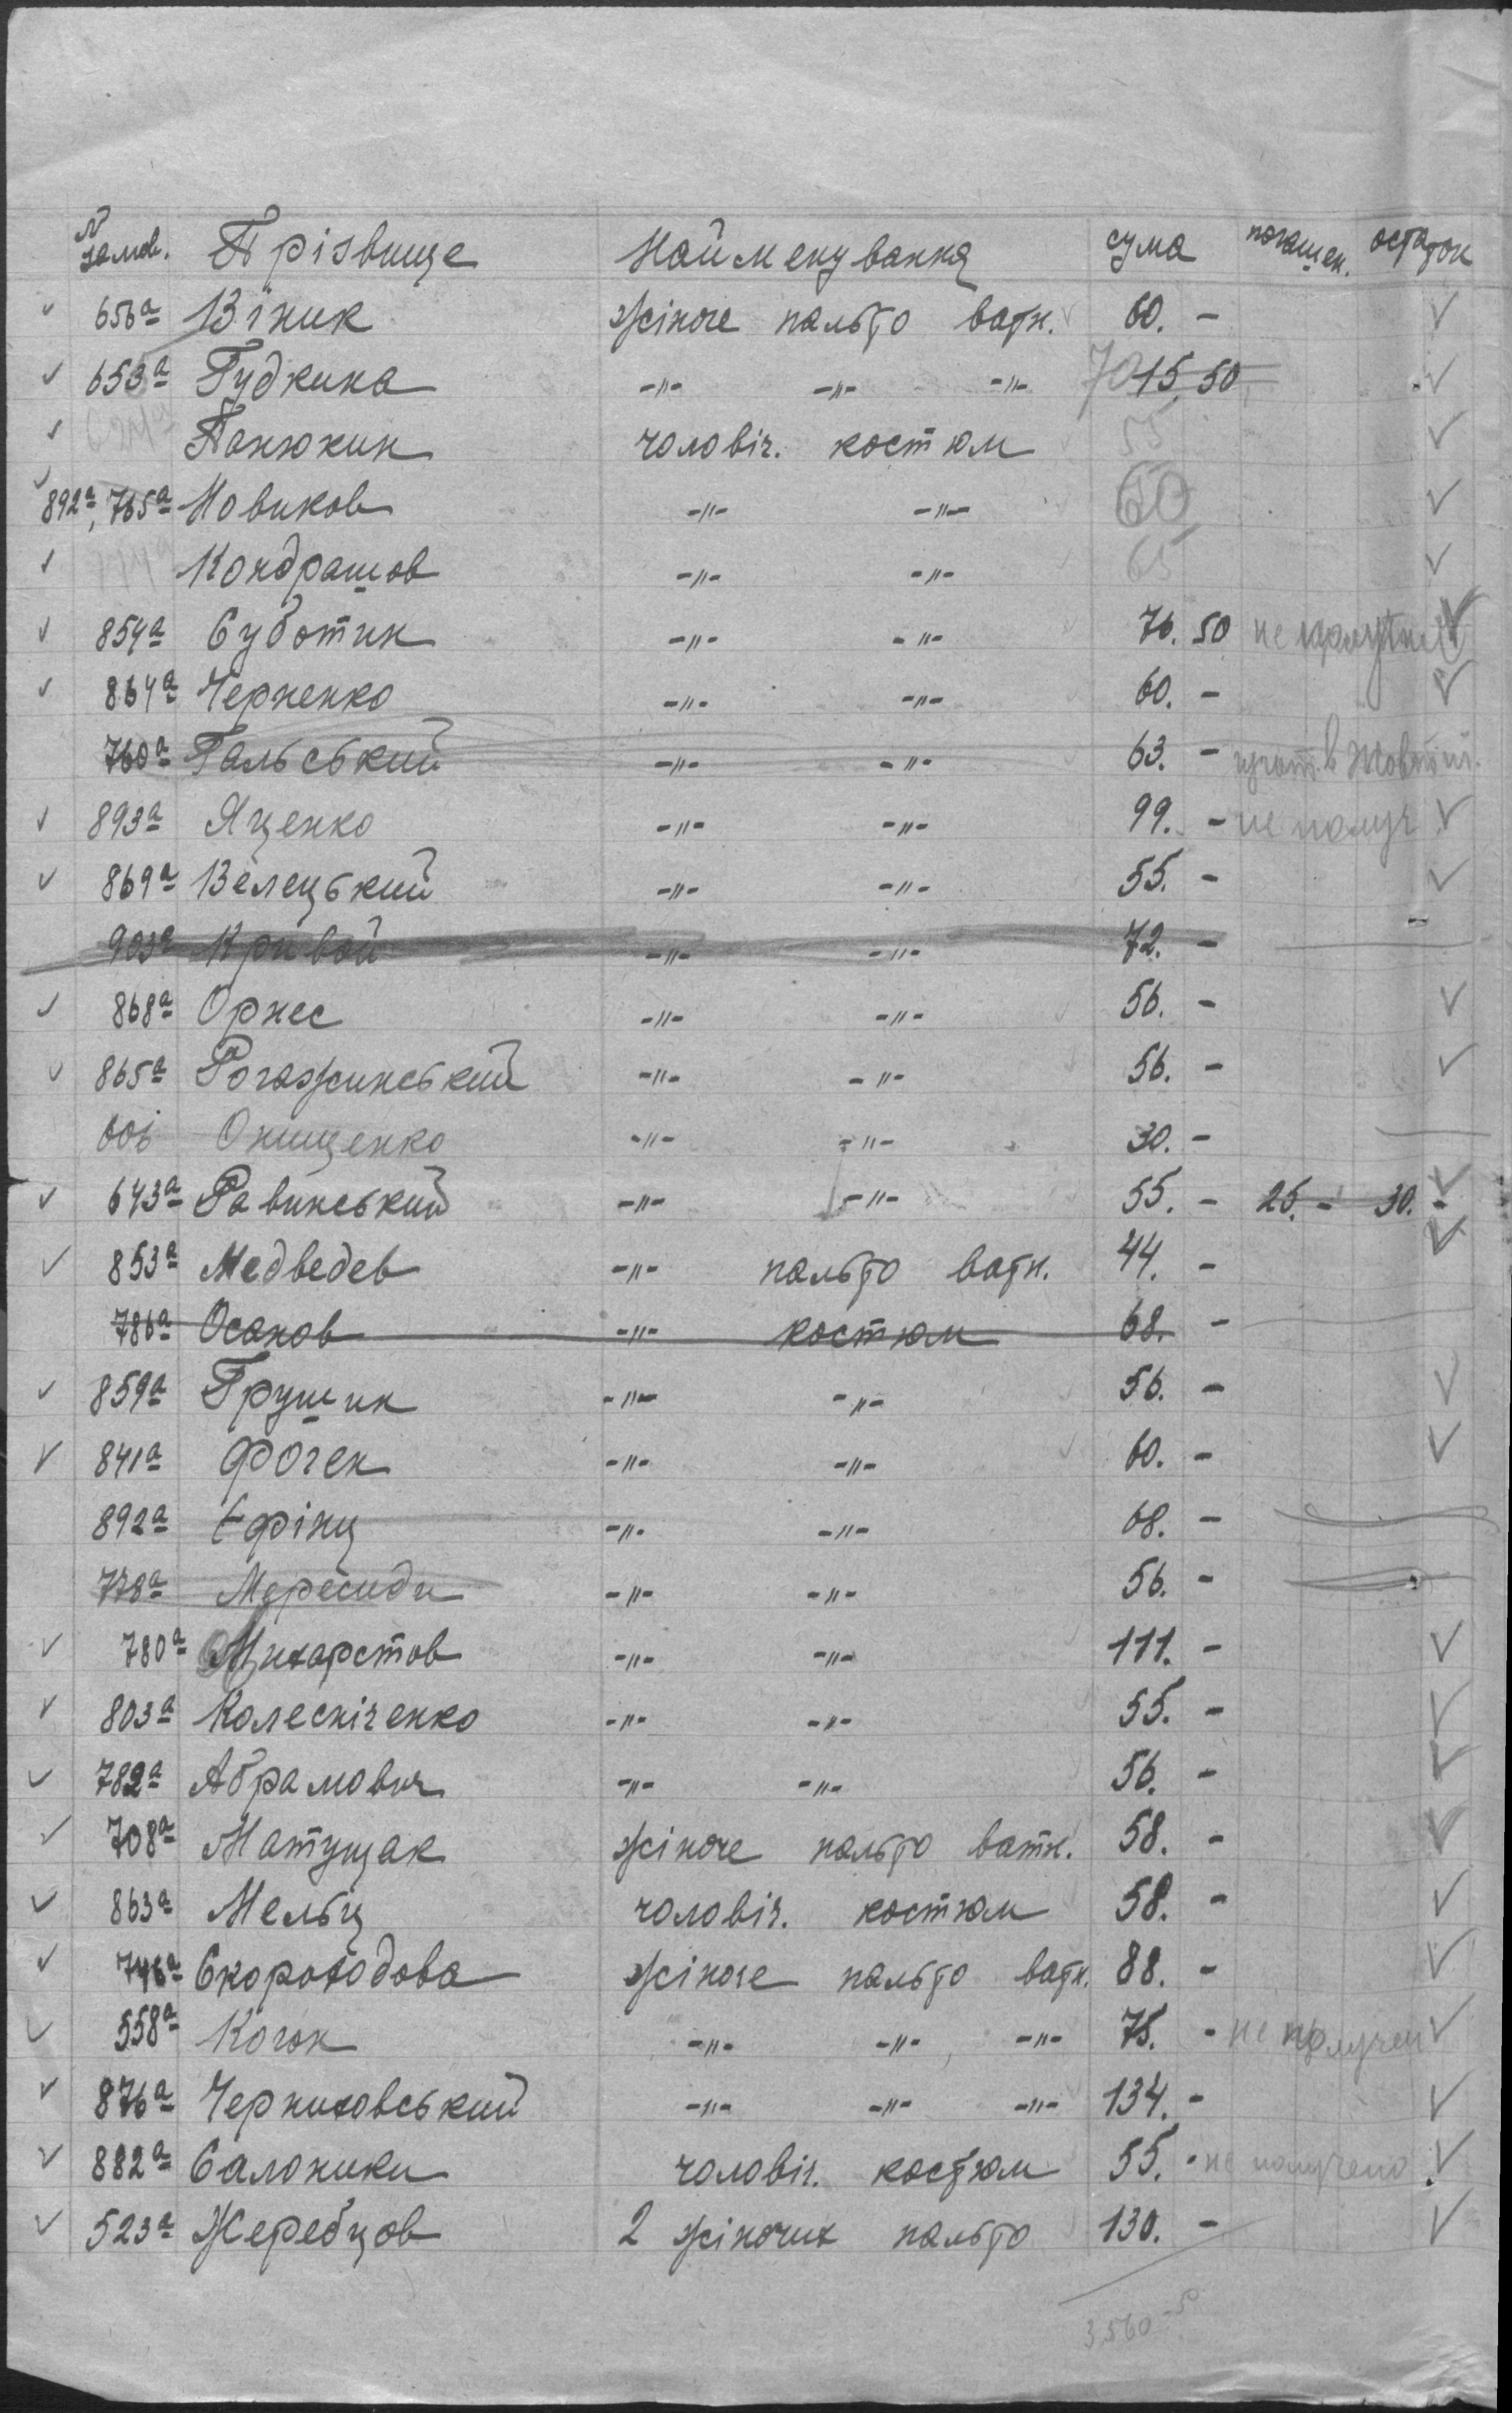 № замов. Прізвище Найменування сума погашен. остаток
656а Віник жіноче пальто ватн. 60. -
653а Гудкина -"- -"- -"- 70 15,50
Панюкин чоловіч. костюм 55
892а, 765а Новиков -"- -"- 60
Кондрашов -"- -"- 65
854а Суботин -"- -"- 76. 50 не
864а Черненко -"- -"- 60. -
760а Гальський -"- -"- 63. - в
893а Яценко -"- -"- 99. - не получ
869а Белецький -"- -"- 55. -
903а Кривой -"- -"- 72. -
868а Орнес -"- -"- 56. -
865а Рогажинський -"- -"- 56. -
Онищенко -"- -"- 30. -
643а Равинський -"- -"- 55. - 25. - 30. -
853а Медведев -"- пальто ватн. 44. -
786а Осанов -"- костюм 68. -
859а Грушин -"- -"- 56. -
841а Фоген -"- -"- 60. -
892а Єфінц -"- -"- 68. -
778а -"- -"- 56. -
780а Михарстов -"- -"- 111. -
803а Колесніченко -"- -"- 55. -
782а Абрамович -"- -"- 56. -
708а Матущак жіноче пальто ватн. 58. -
863а Мельц чоловіч. костюм 58. -
746а Скороходова жіноче пальто ватн. 88. -
558а Когон -"- -"- -"- 75. - не получен
876а Черниховський -"- -"- -"- 134. -
882а Салоники чоловіч. костюм 55. - не получено
523а Жеребцов 2 жіночих пальто 130. -
3,560 - 50